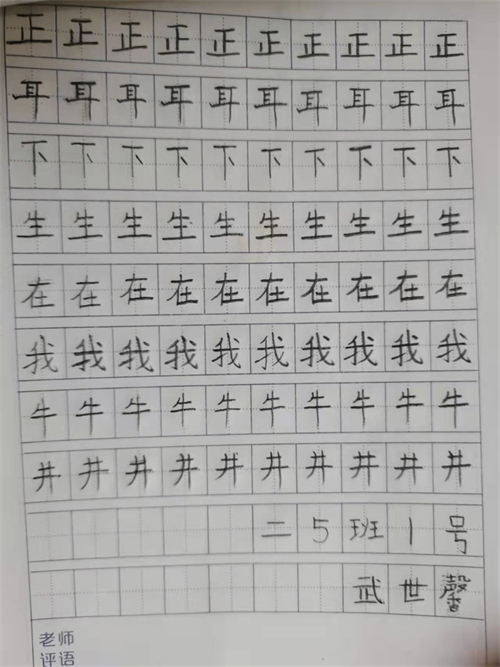 正正正正正正正正正正
耳耳耳耳耳耳耳耳耳耳
下下下下下下下下下下
生生生生生生生生生生
在在在在在在在在在在
我我我我我我我我我我
牛牛牛牛牛牛牛牛牛牛
井井井井井井井井井井
二5班1号
武世馨
老师
评语